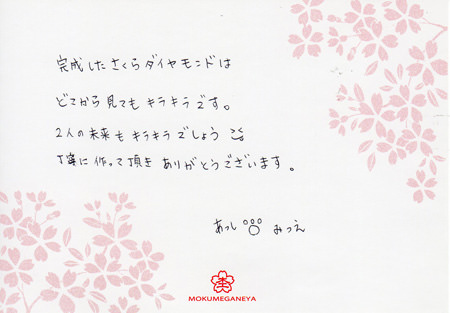 完成したさくらダイヤモンドは
どこから見てもキラキラです。
2人の未来もキラキラでしょう
丁寧に作って頂きありがとうございます。
あつし みつえ
MOKUMEGANEYA